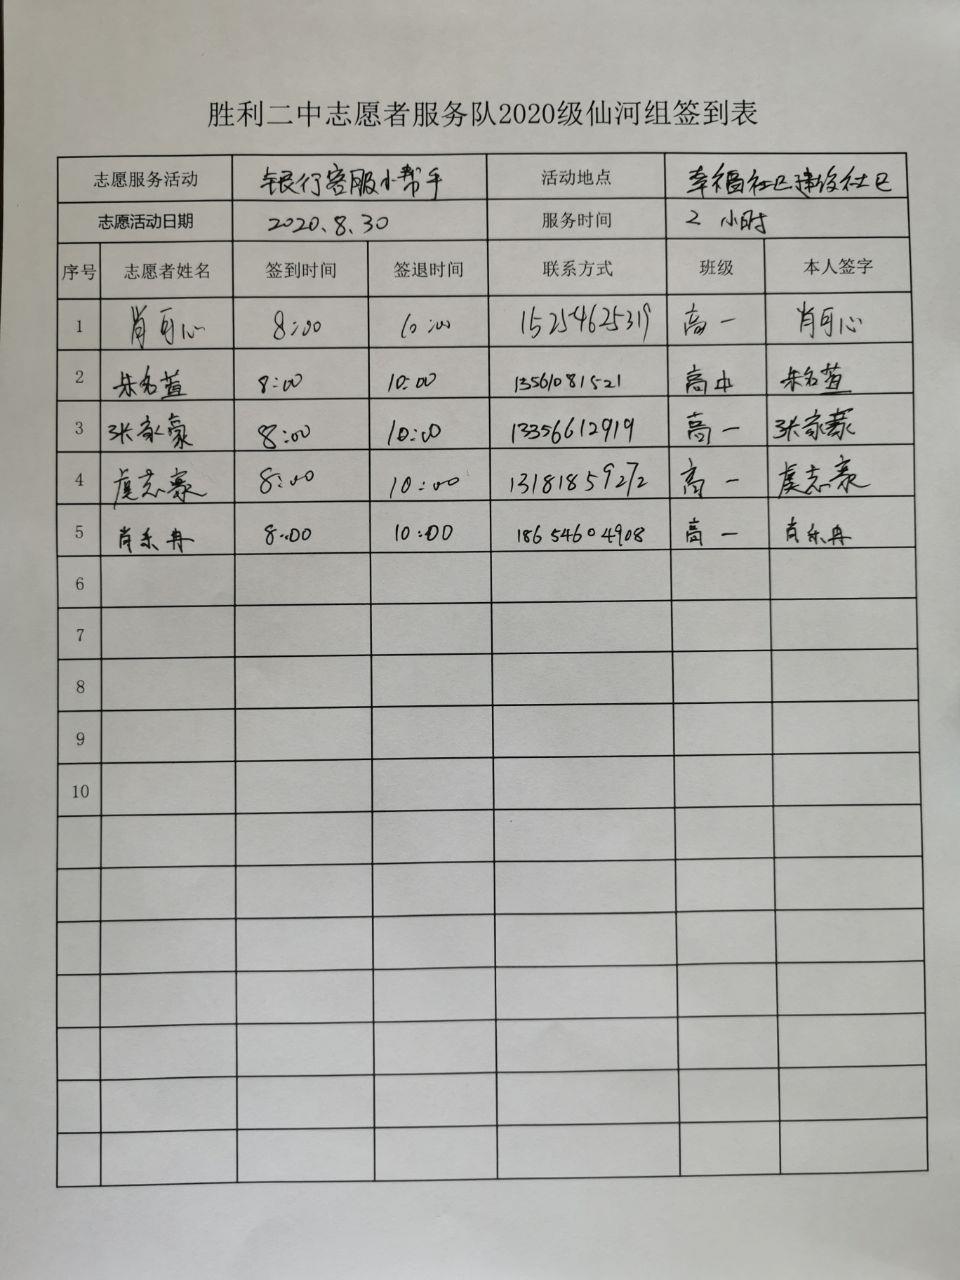 胜利二中志愿者服务队2020级仙河组签到表
志愿服务活动 银行客服小帮手 活动地点 幸福社区建设社区
志愿活动日期 2020.8.30 服务时间 2 小时
序号 志愿者姓名 签到时间 签退时间 联系方式 班级 本人签字
1 肖可心 8:00 10:00 15254625319 高一 肖可心
2 朱名萱 8:00 10:00 13561081521 高中 朱名萱
3 张家豪 8:00 10:00 13356612919 高一 张家豪
4 虞志豪 8:00 10:00 13181859272 高一 虞志豪
5 肖乐冉 8:00 10:00 18654604908 高一 肖乐冉
6
7
8
9
10